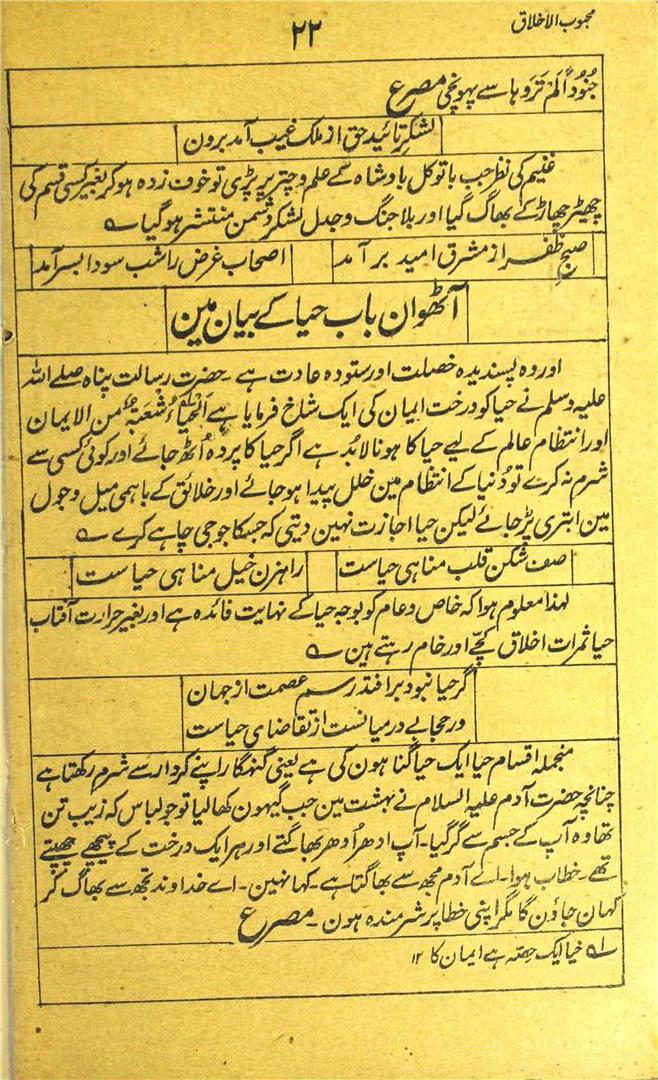 محبوب الاخلاق
۲۲
جُنُوداً لَم تَرَوہا سے پہونچی مصرع
لشکرِ تائید حق از ملک غیب آمد برون
غنیم کی نظر جب با توکل بادشاہ کے علم و چتر پر پڑی تو خوف زدہ ہوکر بغیر کسی قسم کی
چھیڑ چھاڑ کے بھاگ گیا اور بلا جنگ و جدل لشکر دشمن منتشر ہوگیا ؎
صبح ظفر از مشرق امید بر آمد
اصحاب غرض را شب سودا بسر آمد
آٹھوان باب حیا کے بیان مین
اور وہ پسندیدہ خصلت اور ستودہ عادت ہے ۔ حضرت رسالت پناہ صلے اللہ
علیہ وسلم نے حیا کو درخت ایمان کی ایک شاخ فرمایا ہے اَلحَیَاءُ شُعبَۃٌ من الایمان
اور انتظام عالم کے لیے حیا کا ہونا لابُد ہے اگر حیا کا پردہ اُٹھ جائے اور کوئی کسی سے
شرم نہ کرے تو دُنیا کے انتظام مین خلل پیدا ہو جائے اور خلائق کے باہمی میل و جول
مین ابتری پڑ جائے لیکن حیا اجازت نہین دیتی کہ جسکا جو جی چاہے کرے ؎
صف شکن قلب مناہی حیاست
راہزن خیل مناہی حیاست
لہذا معلوم ہوا کہ خاص و عام کو بوجہ حیا کے نہایت فائدہ ہے اور بغیر حرارت آفتاب
حیا ثمرات اخلاق کچّے اور خام رہتے ہین ؎
گر حیا نبود بر افتد رسم عصمت از جہان
ور حجابے درمیانست از تقاضای حیاست
منجملہ اقسام حیا ایک حیا گناہون کی ہے یعنی گنہگار اپنے کردار سے شرم رکھتا ہے
چنانچہ حضرت آدم علیہ السلام نے بہشت مین جب گیہون کھا لیا تو جو لباس کہ زیب تن
تھا وہ آپ کے جسم سے گر گیا ۔ آپ ادھر اُدھر بھاگتے اور ہر ایک درخت کے پیچھے چھپتے
تھے ۔ خطاب ہوا ۔ اے آدم مجھ سے بھاگتا ہے ۔ کہا نہین ۔ اے خداوند تجھ سے بھاگ کر
کہان جاؤن گا مگر اپنی خطا پر شرمندہ ہون ۔ مصرع
؎ حیا ایک حصّہ ہے ایمان کا ۱۲